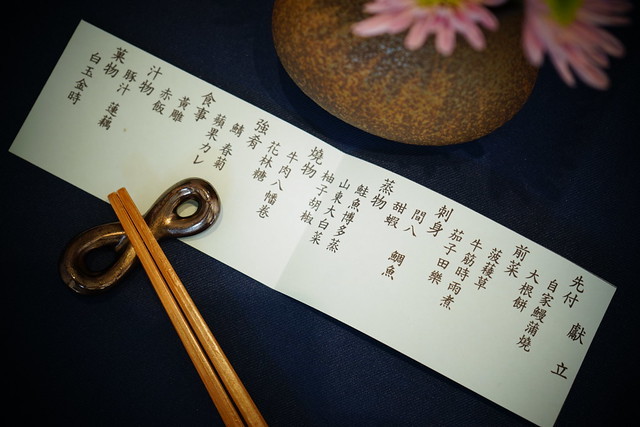 獻立
先付
自家鰻蒲燒
大根餅
前菜
菠薐草
牛筋時雨煮
茄子田樂
刺身
間八 鯛魚
甜蝦
蒸物
鮭魚博多蒸
山東大白菜
柚子胡椒
燒物
牛肉八幡卷
花林糖
強肴
鯖 春菊
蘋果カレ
食事
黃雕
赤飯
汁物
豚汁 蓮藕
菓物
白玉金時